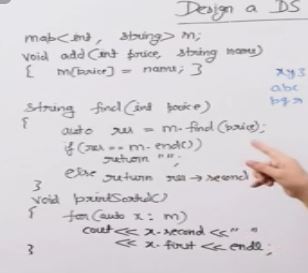 Design a DS
map<int, string> m;
void add(int price, string name)
{ m[price] = name; }
xyz
abc
pqr
string find(int price)
{
auto res = m.find(price);
if(res == m.end())
return "";
else return res → second
}
void printSorted()
{
for(auto x : m)
cout << x.second << " "
<< x.first << endl;
}